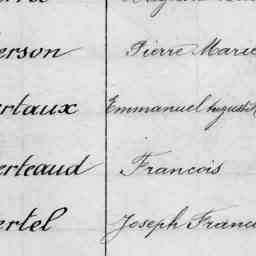 erson Pierre Marie
ertaux Emmanuel August
erteaud Francois
ertel Joseph Franc